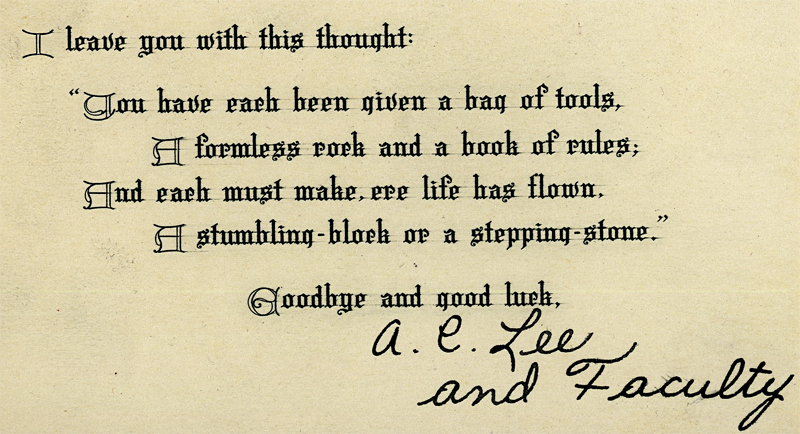 I leave you with this thought:
“You have each been given a bag of tools,
A formless rock and a book of rules;
And each must make, ere life has flown,
A stumbling-block or a stepping-stone.”
Goodbye and good luck,
A. C. Lee
and Faculty